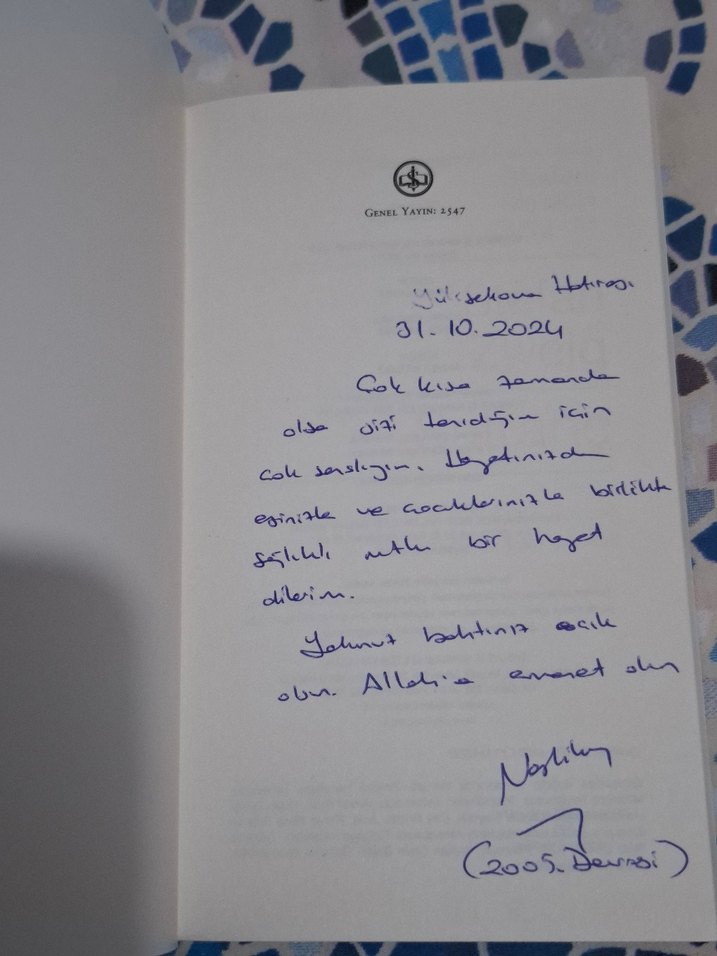 GENEL YAYIN: 2547
Yüksekova Hatırası
31.10.2024
Çok kısa zamanda
olsa sizi tanıdığım için
çok şanslıyım. Hayatınızda
eşinizle ve çocuklarınızla birlikte
sağlıklı mutlu bir hayat
dilerim.
bahtınız açık
olsun. Allah'a emanet olun
(2005. Devresi)